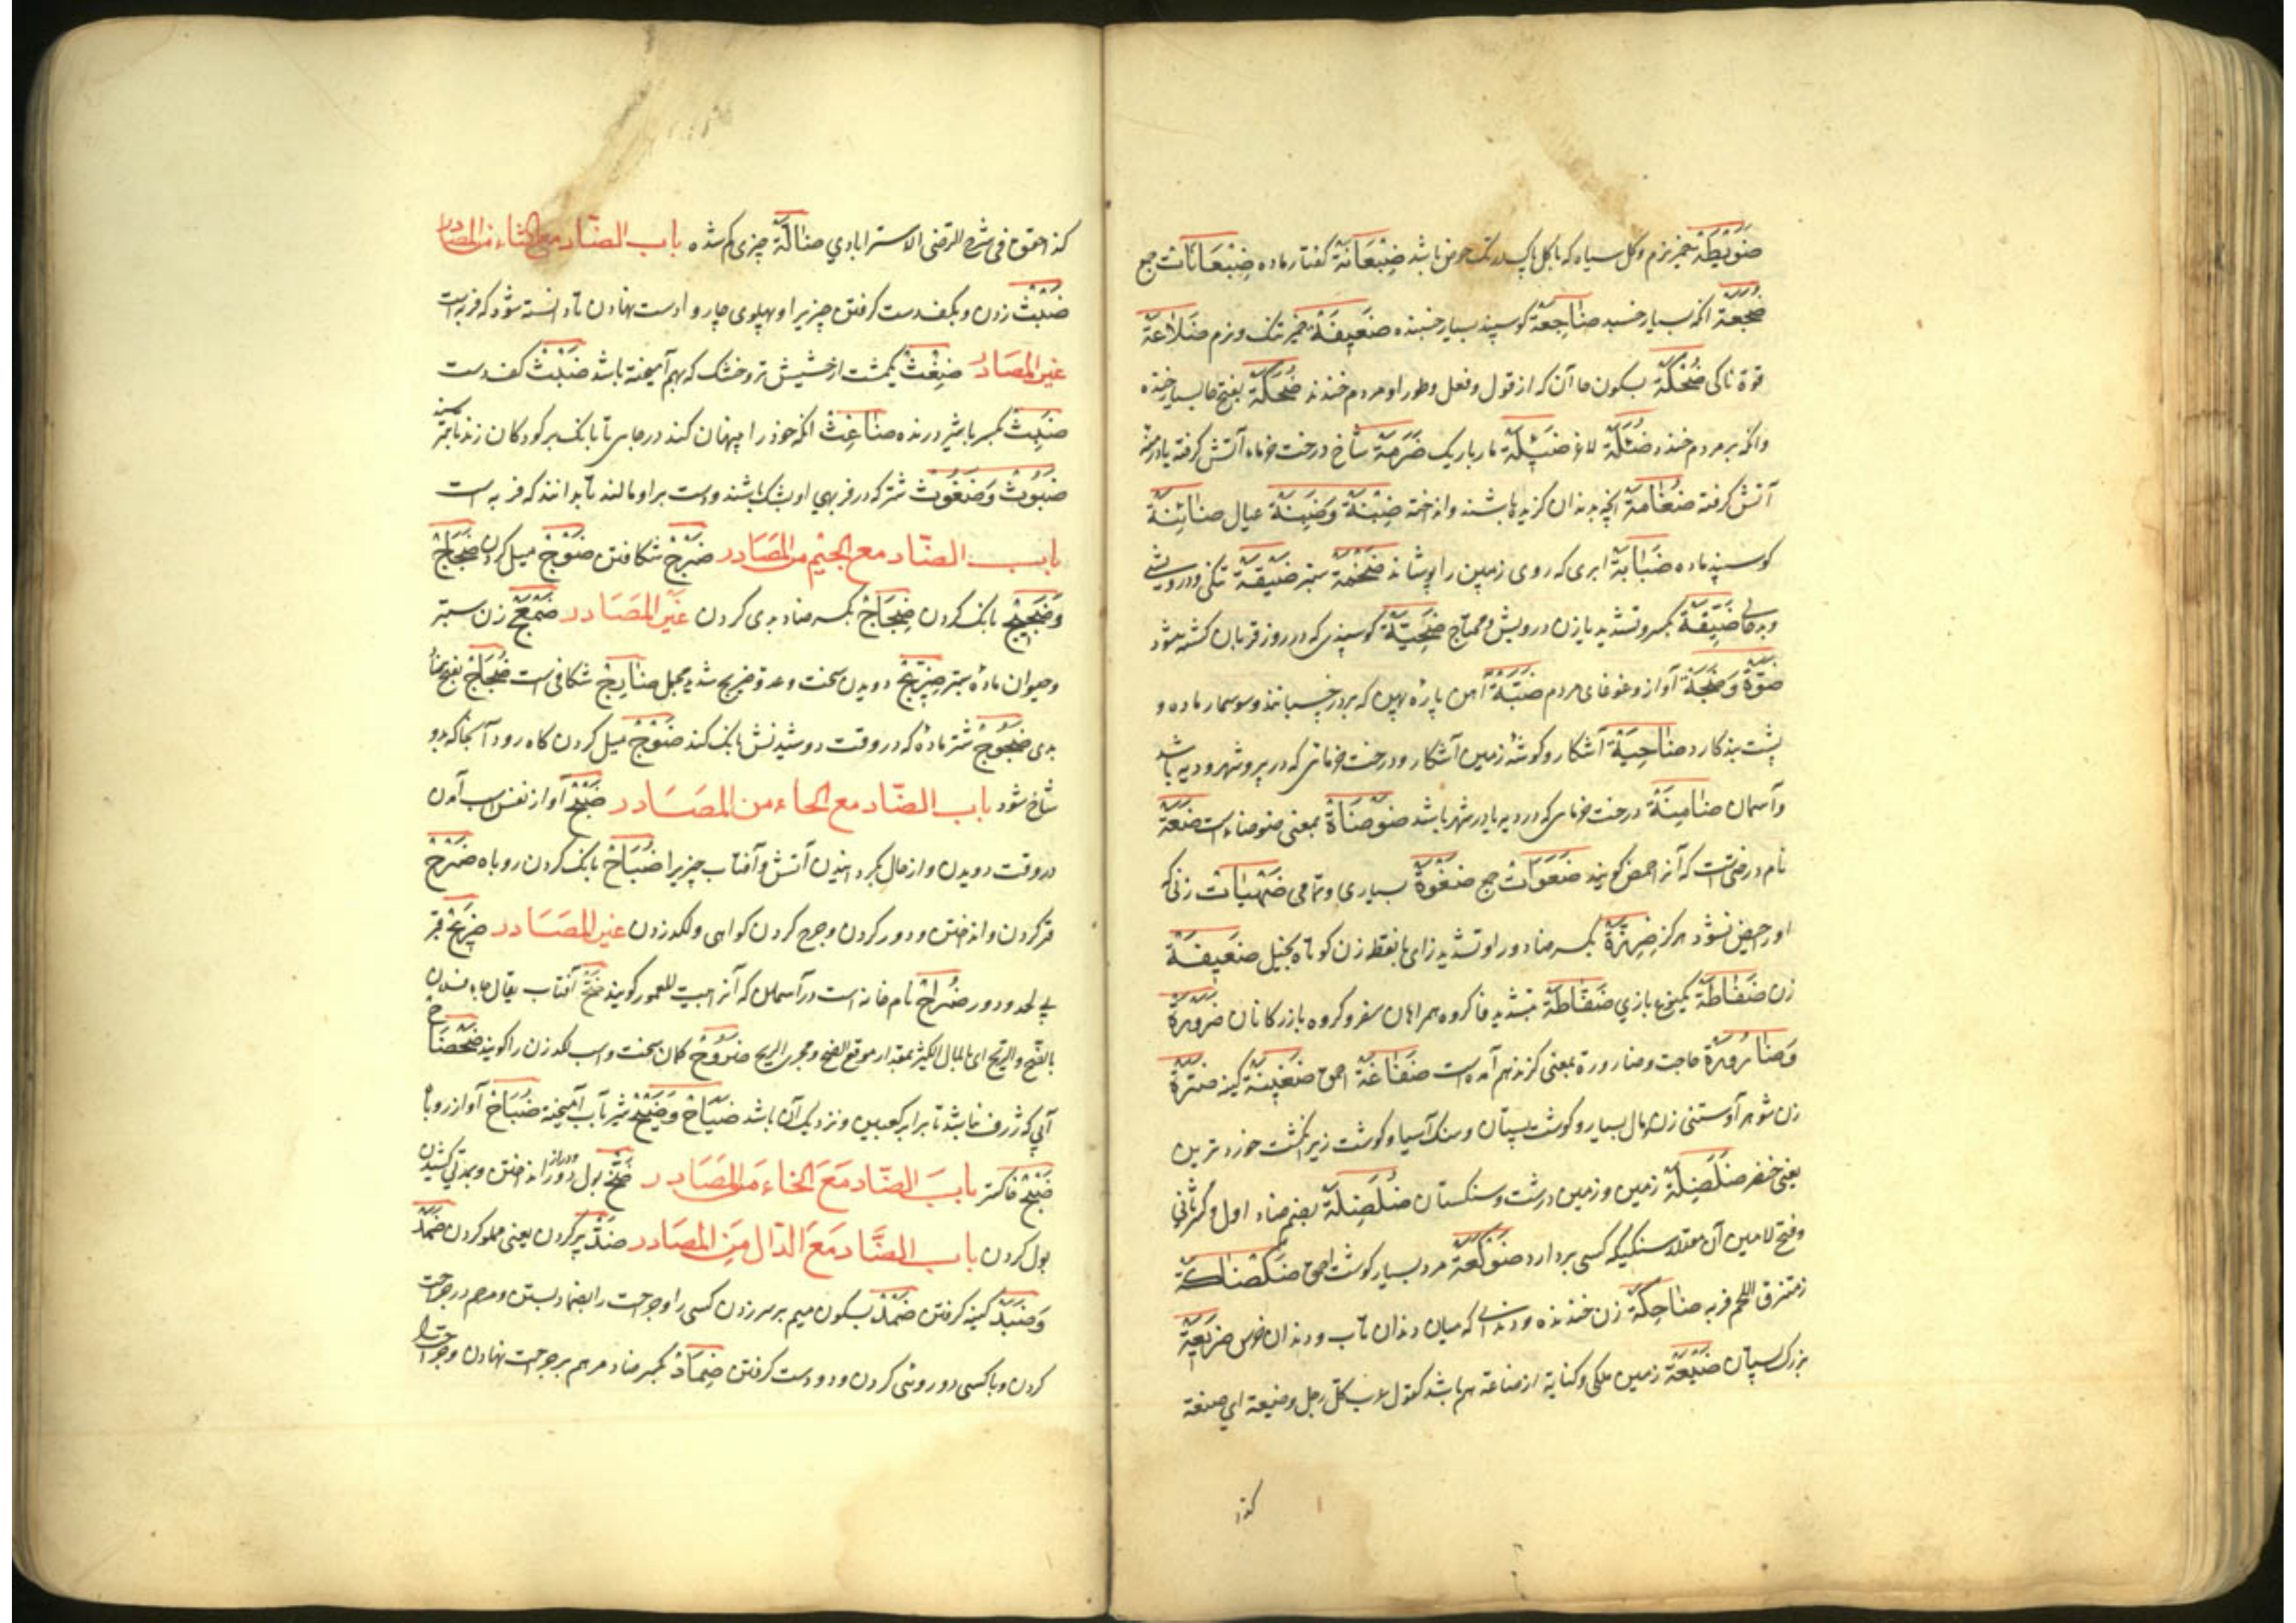 ضَوِيطَة خمیر نرم و کل سیاه که با کل پاک در تک حوض باشد ضِبْعَانَة کفتار ماده ضِبْعَانَات جمع
ضُجَعَة انکه بسیار خسبد ضَاجِعَة کوسپند بسیار خسبنده ضَعِیفَة خمیر تنک و نرم ضَلَاعَة
قوة ناکی ضُحْکَة بسکون حا آن که از قول و فعل و طور او مردم خندند ضُحَکَة بفتح حا بسیار خنده
وانکه بر مردم خندد ضُئَلَة لاغر ضَئِیلَة مار باریک ضَرَمَة شاخ درخت خرما آتش کرفته یا درمنه
آتش کرفته ضُغَامَة انچه بدندان کزیده باشند و انداخته ضِبْنَة وَضَبِنَة عیال ضَائِنَة
کوسپند ماده ضَبَابَة ابری که روی زمین را پوشاند ضَخْمَة ستبر ضَیْقَة تنکی و درویشی
و بدحالی ضَیِّقَة بکسر و تشدید یا زن درویش و محتاج ضَحِیَّة کوسپندی که در روز قربان کشته میشود
ضَوَّة وَضَجَّة آواز و غوغای مردم ضَبَّة آهن پاره پهن که بر در چسبانند و سوسمار ماده و
پشت بند کارد ضَاحِیَة آشکار و کوشهٔ زمین آشکار و درخت خرمائی که در بیرو شهر و دیه باشد
و آسمان ضَامِنَة درخت خرمائی که در دیه یا در شهر باشد ضَوْضَاة بمعنی ضوضاء است ضَعَة
نام درختی است که آنرا حمض کویند ضَعَوَات جمع ضَغْوَة بسیاری و تمامی ضَهْیَات زنی که
او را حیض نشود هرکز ضِرِزَّة بکسر ضاد و را و تشدید زای با نقطه زن کوتاه بخیل ضَعِیفَة
زن ضَفَاطَة بازی ضَفَّاطَة بتشدید فا کروه همراهان سفر و کروه بازرکانان ضَرُورَة
وَضَارُورَة حاجت و ضارورة بمعنی کزند هم آمده است ضَفَاغَة احمق ضَغِینَة کینه ضَرَّة
زن شوهر آوستنی زن و مال بسیار و کوشت پستان و سنک آسیا و کوشت زیر انکشت خورد ترین
یعنی خنصر ضَلَضِلَة زمین و زمین درشت و سنکستان ضُلَضِلَة بضم ضاد اول و کسر ثانی
و فتح لامین آن مقدار سنکی که کسی بردارد ضَوْکَعَة مرد بسیار کوشت احمق ضَکْضَاکَة
زن متفرق اللحم فربه ضَاحِکَة زن خندنده و دندانی که میان دندان ناب و دندان خرس ضَرِیعَة
بزرک پستان ضَیْعَة زمین ملکی و کنایة از صناعة هم باشد کقول العرب کل رجل وضیعة ای صنعة
کذا
کذا حقق فی شرح للرضی الاستر ابادی ضَالَّة چیزی کم شده باب الضّاد مع الثاء من المصادر
ضَبْث زدن و بکف دست کرفتن چیزیرا و بپهلوی چاروا دست نهادن تا دانسته شود که فربه است
غیر المصادر ضِغْث یکمشت از حشیش تر و خشک که بهم آمیخته باشد ضَبْث کف دست
ضَبِث بکسر با شیر درنده ضَاغِث انکه خود را پنهان کند در جایی تا بانک بر کودکان زند تا بترسند
ضَبُوث وَضَغُوث شتر که در فربهی او بشک باشند و دست بر او مالند تا بدانند که فربه است
باب الضّاد مع الجیم من المصادر ضَرْج شکافتن ضَوْج میل کردن ضَجَاج
وَضَجِیج بانک کردن ضِجَاج بکسر ضاد بدی کردن غیر المصادر ضَمْعَج زن ستبر
و حیوان مادهٔ ستبر ضَرِیج دویدن سخت و عدو ضریج شدید محبل ضَارِج شکافی است ضَجَاج بفتح ضاد
بدی ضَجُوج شتر ماده که در وقت دوشیدنش بانک کند ضَوْج میل کردن کاه رود آنجا که دو
شاخ شود باب الضّاد مع الحاء من المصادر ضَبْح آواز نفس اسب آمدن
در وقت دویدن و از حال بکردانیدن آتش و آفتاب چیزیرا ضُبَاح بانک کردن روباه ضَرْح
قبر کردن و انداختن و دور کردن و جرح کردن کواهی و لکد زدن غیر المصادر ضَرِیح قبر
بی لحد و دور ضُرَاح نام خانه است در آسمان که آنرا بیت المعمور کویند ضِحّ آفتاب یقال جاء فلان
بالضّح والریح ای بالمال الکثیر بمقدار موقع الضح و مجری الریح ضَرُوح کمان سخت و اسب لکد زن را کویند ضَحْضَاح
آبی که ژرف نباشد تا برابر کعبین و نزدیک آن باشد ضَیَاح وَضَیْح شیر با آب آمیخته ضُبَاح آواز روباه
ضِبْح خاکستر باب الضّاد مع الخاء من المصادر ضَخّ بول دور و دراز انداختن و بمدتی کشیدن
بول کردن باب الضّاد مع الدّال من المصادر ضَدّ پر کردن یعنی مملو کردن ضَمَد
وَضَبَد کینه کرفتن ضَمْد بسکون میم بر سر زدن کسی را و جراحت را بضماد بستن و مرهم در جراحت
کردن و با کسی دوروئی کردن و دو دوست کرفتن ضِمَاد بکسر ضاد مرهم بر جراحت نهادن و جراحت را